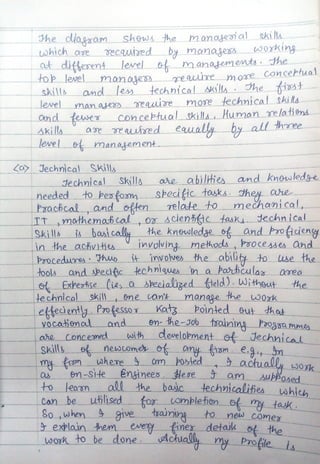 The diagram shows the managerial skills
which are recquired by managers working
at different level of managements. The
top level managers require more conceptual
skills and less technical skills. The first
level managers require more technical skills
and fewer conceptual skills. Human relations
skills are required equally by all three
level of management.
<a> Technical Skills
Technical Skills are abilities and knowledge
needed to perform specific tasks. They are
Practical, and often relate to mechanical,
IT, mathematical, or scientific tasks. Technical
Skills is basically the knowledge of and Proficiency
in the activities involving methods, Processes and
Procedures. Thus it involves the ability to use the
tools and specific techniques in a Particular area
of Expertise (i.e, a specialized field). Without the
technical skill, one can't manage the work
effeciently. Professor Katz Pointed out that
vocational and on-the-Job training Programmes
are concerned with development of Technical
Skills of newcomers of any firm e.g., In
my firm where I am posted, I actually work
as on-site Engineers. Here I am supposed
to learn all the basic technicalities which
can be utilised for completion of my task.
So, when I give training to new comer
I explain them every finer details of the
work to be done. Actually my Profile is